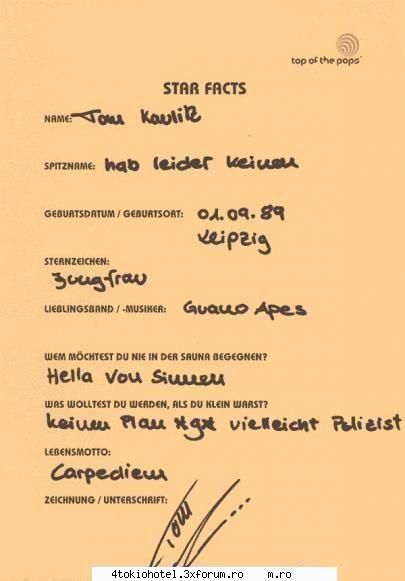 top of the pops™
STAR FACTS
NAME: Tom Kaulitz
SPITZNAME: hab leider keinen
GEBURTSDATUM / GEBURTSORT: 01.09.89
Leipzig
STERNZEICHEN:
Jungfrau
LIEBLINGSBAND / -MUSIKER: Guano Apes
WEM MÖCHTEST DU NIE IN DER SAUNA BEGEGNEN?
Hella Von Sinnen
WAS WOLLTEST DU WERDEN, ALS DU KLEIN WARST?
keinen Plan *g* vielleicht Polizist
LEBENSMOTTO:
Carpediem
ZEICHNUNG / UNTERSCHRIFT:
Tom
4tokiohotel.3xforum.ro m.ro